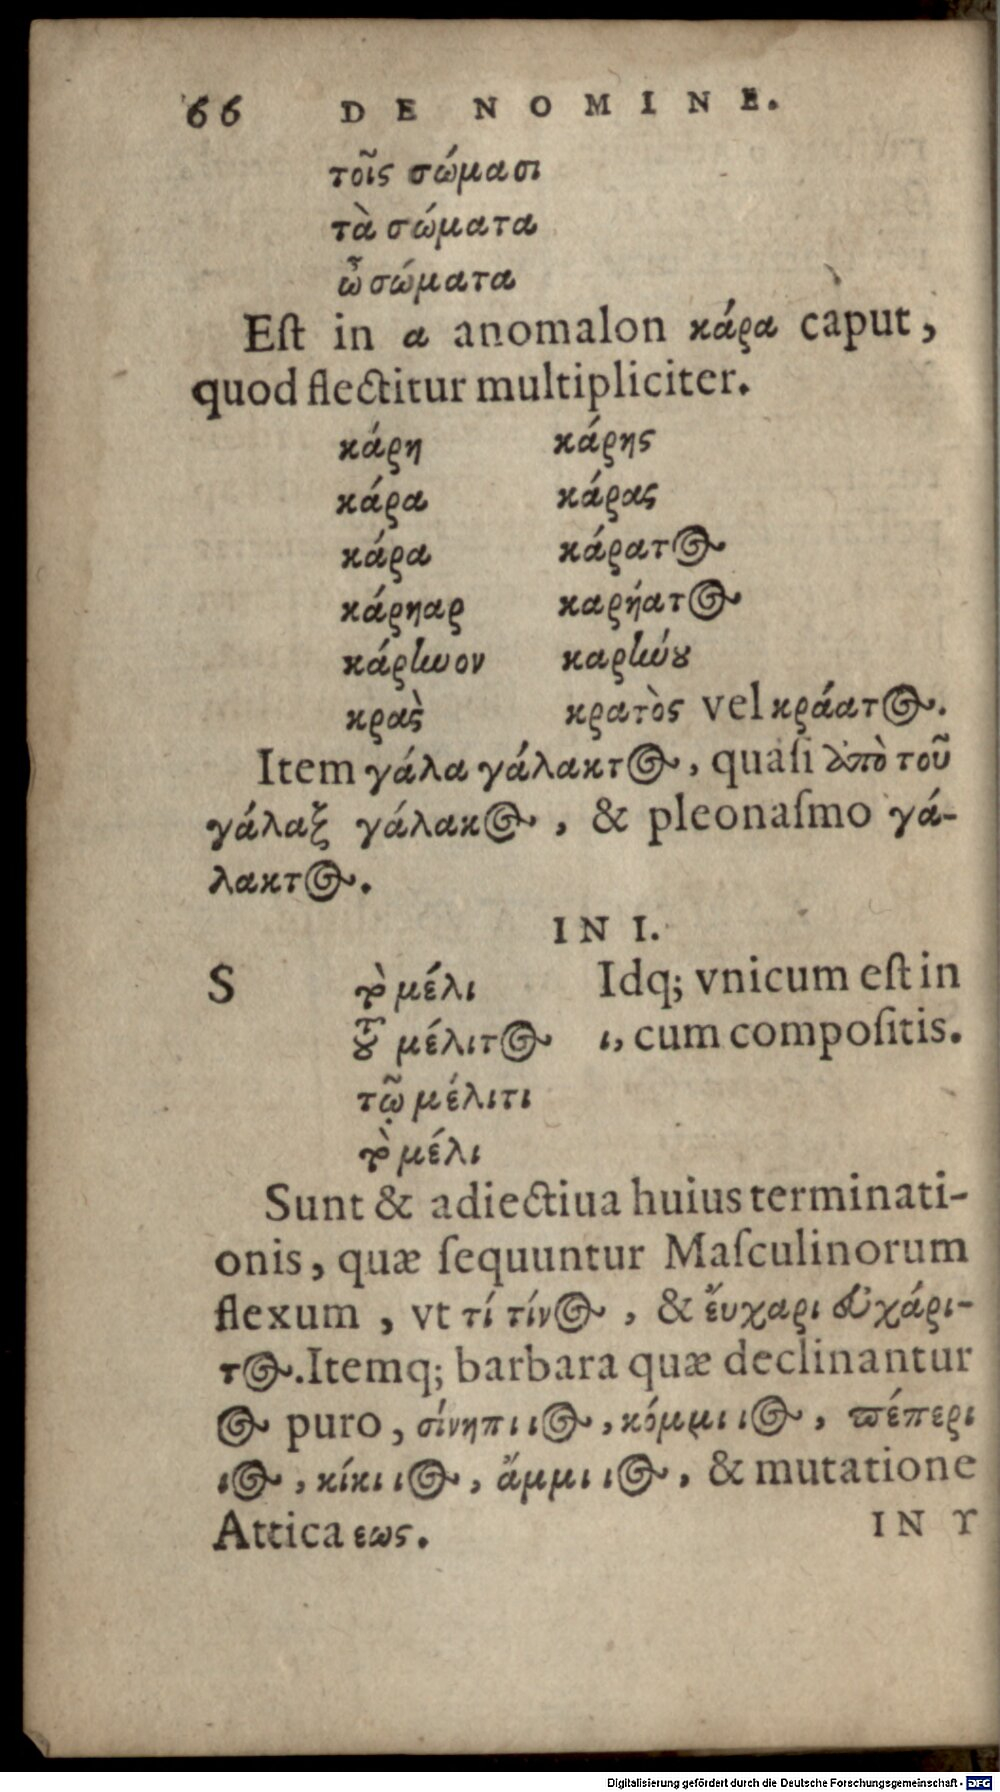 66 DE NOMINE.
τοῖς σώμασι
τὰ σώματα
ὦ σώματα
Eſt in α anomalon κάρα caput,
quod flectitur multipliciter.
κάρη κάρης
κάρα κάρας
κάρα κάρατος
κάρηαρ καρήατος
κάρηνον καρήνου
κρας κρατὸς vel κράατος.
Item γάλα γάλακτος, quaſi ἀπὸ τοῦ
γάλαξ γάλακος, & pleonaſmo γά-
λακτος.
IN I.
S τὸ μέλι Idq; vnicum eſt in
τοῦ μέλιτος ι, cum compoſitis.
τῷ μέλιτι
τὸ μέλι
Sunt & adiectiua huius terminati-
onis, quæ ſequuntur Maſculinorum
flexum, vt τί τίνος, & ἔυχαρι εὐχάρι-
τος. Itemq; barbara quæ declinantur
ος puro, σίνηπι ιος, κόμμι ιος, πέπερι
ιος, κίκι ιος, ἄμμι ιος, & mutatione
Attica εως. IN Υ
Digitalisierung gefördert durch die Deutsche Forschungsgemeinschaft - DFG